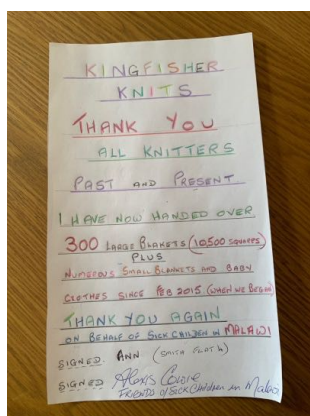 KINGFISHER
KNITS
THANK YOU
ALL KNITTERS
PAST AND PRESENT
I HAVE NOW HANDED OVER
300 LARGE BLANKETS (10,500 SQUARES)
PLUS
NUMEROUS SMALL BLANKETS AND BABY
CLOTHES SINCE FEB 2015. (WHEN WE BEGAN)
THANK YOU AGAIN
ON BEHALF OF SICK CHILDEN IN MALAWI
SIGNED. ANN
SIGNED Alexis
FRIENDS of SICK Children in Malawi